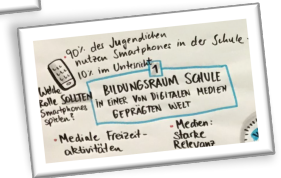 90% der Jugendlichen
nutzen Smartphones in der Schule.
10% im Unterricht
1
Welche
Rolle SOLLTEN
Smartphones
spielen?
BILDUNGSRAUM SCHULE
IN EINER VON DIGITALEN MEDIEN
GEPRÄGTEN WELT
• Mediale Freizeit-
aktivitäten
• Medien:
starke
Relevanz